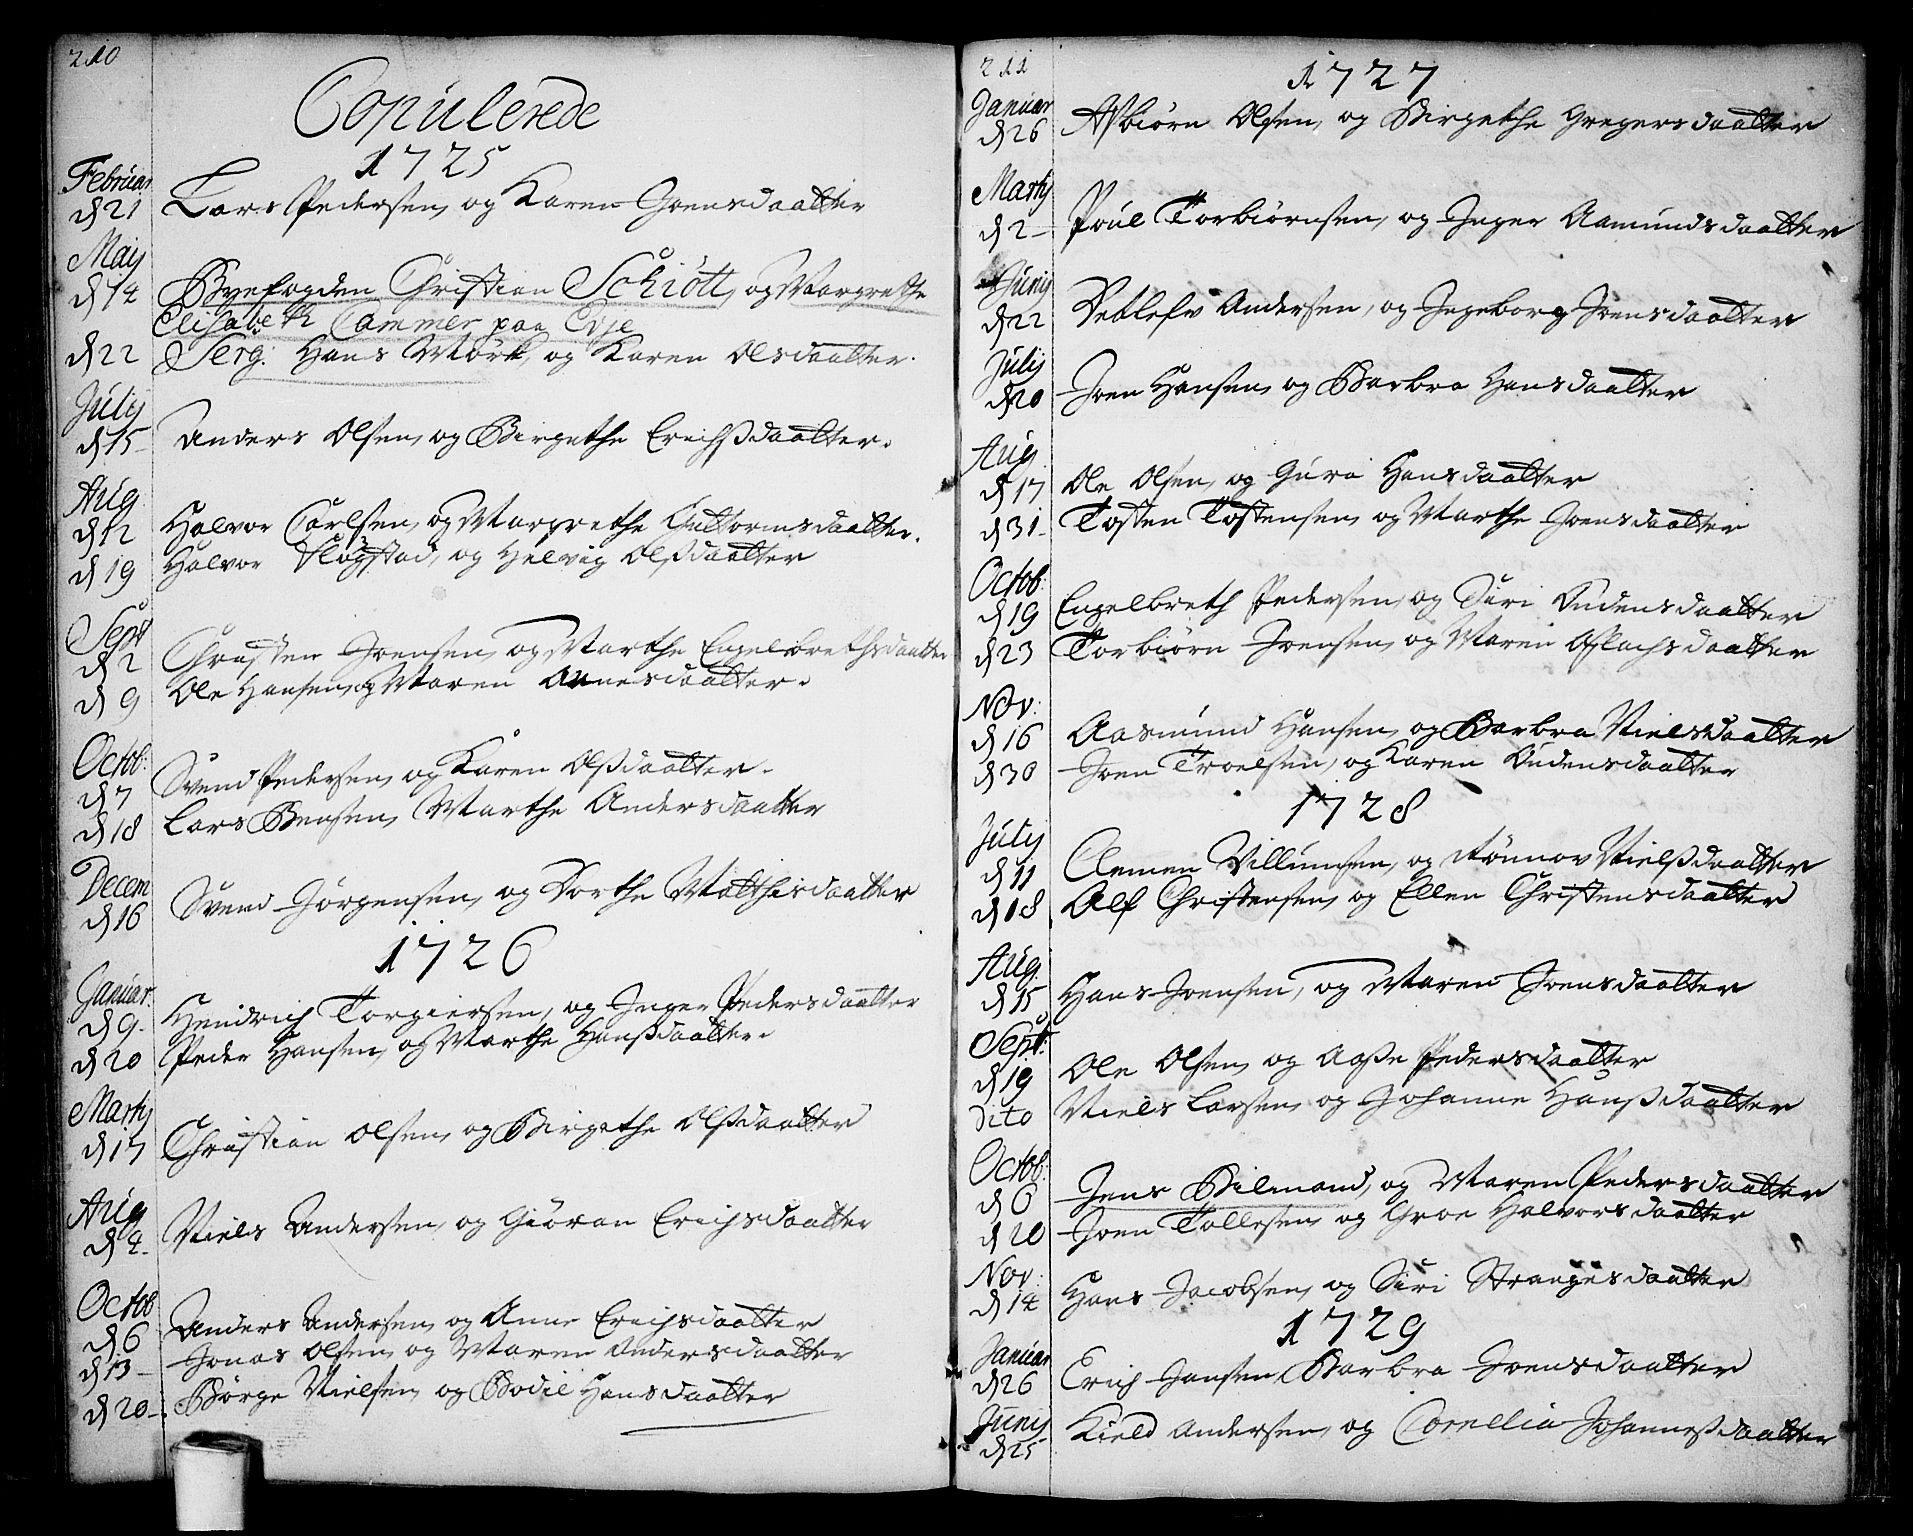 210
Copulerede
1725
Februar
d 21 Lars Pedersen, og Karen Joensdaatter
Maij
d 14 Byefogden Christian Schiött, og Margrethe
Elisabeth Cammer paa Evje
d 22 Serg: Hans Mörk, og Karen Olsdaatter.
Julij
d 15 Anders Olsen, og Birgethe Erichsdaatter.
Aug
d 12 Halvor Carlsen, og Margrethe Guttormsdaatter.
d 19 Halvor Slogstad, og Helvig Olssdaatter
Sept
d 2 Christen Joensen, og Marthe Engelbrethsdaatter
d 9 Ole Hansen, og Maren Annesdaatter.
Octob:
d 7 Svend Pedersen, og Karen Olssdaatter.
d 18 Lars Bensen, Marthe Andersdaatter
Decem
d 16 Svend Jörgensen, og Dorthe Matthisdaatter
1726
Januar
d 9 Hendrich Torgiersen, og Inger Pedersdaatter
d 20 Peder Hansen, og Marthe Hanssdaatter.
Martij
d 17 Christian Olsen, og Birgethe Olssdaatter
Aug
d 4 Niels Andersen, og Giöran Erichsdaatter
Octob
d 6 Anders Andersen, og Anne Erichsdaatter
d 13 Jonas Olsen, og Maren Andersdaatter
d 20 Börge Nielsen, og Bodil Hansdaatter
211
1727
Januar
d 26 Asbiörn Olsen, og Birgethe Gregersdaatter
Martij
d 2 Poul Torbiörnsen, og Inger Aamundsdaatter
Junij
d 22 Detlefv Andersen, og Ingeborg Joensdaatter
Julij
d 20 Joen Hansen, og Barbra Hansdaatter
Aug
d 17 Ole Olsen, og Guro Hansdaatter
d 31 Tosten Tostensen, og Marthe Joensdaatter
Octob:
d 19 Engelbreth Pedersen, og Siri Audensdaatter
d 23 Torbiörn Joensen, og Maren Aslachsdaatter
Nov:
d 16 Aasmund Hansen, og Barbra Nielsdaatter
d 30 Joen Troelsen, og Karen Audensdaatter
1728
Julij
d 11 Clemen Villumsen, og Rönnov Nielssdaatter
d 18 Alf Christensen, og Ellen Christensdaatter
Aug
d 15 Hans Joensen, og Maren Joensdaatter
Sept:
d 19 Ole Olsen, og Aasse Pedersdaatter
Dito Niels Larsen, og Johanne Hanssdaatter
Octob:
d 6 Jens Bilmand, og Maren Pedersdaatter
d 20 Joen Tollesen, og Groe Halvorsdaatter
Nov:
d 14 Hans Jacobsen, og Siri Strangesdaatter
1729
Januar
d 26 Erich Jansen, Barbra Joensdaatter
Junij
d 25 Kield Andersen, og Cornelia Johannessdaatter